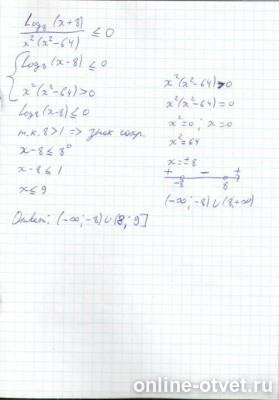 log₈(x+8)
x²(x²-64) ≤ 0
{ log₈(x-8) ≤ 0
x²(x²-64)>0
log₈(x-8) ≤ 0
т.к. 8>1 => знак сохр.
x-8 ≤ 8⁰
x-8 ≤ 1
x ≤ 9
x²(x²-64)>0
x²(x²-64)=0
x²=0; x=0
x²=64
x=±8
+ - +
-8 8
(-∞;-8)∪(8;+∞)
Ответ: (-∞;-8)∪(8;9]
online-otvet.ru